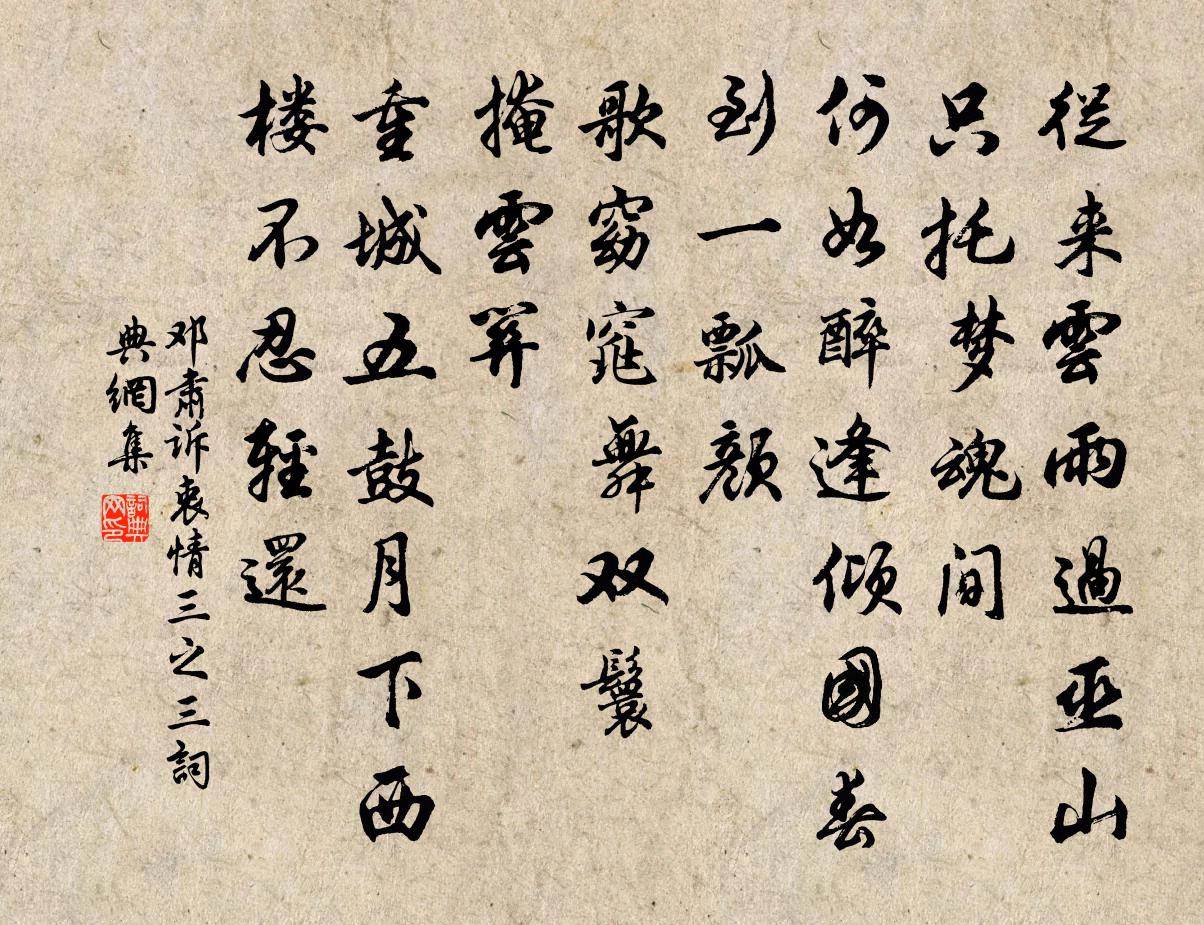 從来雲雨過巫山
只托梦魂间
何如醉逢倾國春
到一瓢颜
歌窈窕舞双鬟
掩雲关
重城五鼓月下西
楼不忍輕還
邓肃诉衷情三之三詞
典網集
詞典
网印